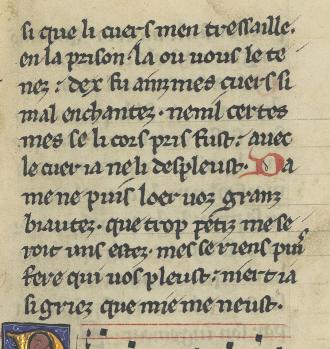 si que li cuers men tressaille.
en la prison. la ou vous le te
nez: dex fu ainz mes cuers si
mal enchantez. nenil certes
mes se li cors pris fust: avec
le cuer ia ne li despleust. Da
me ne puis loer voz granz
biautez. que trop petiz me se
roit uns estez. mes se riens puis
fere qui vos pleust: niert ia
si griez que mie me neust.